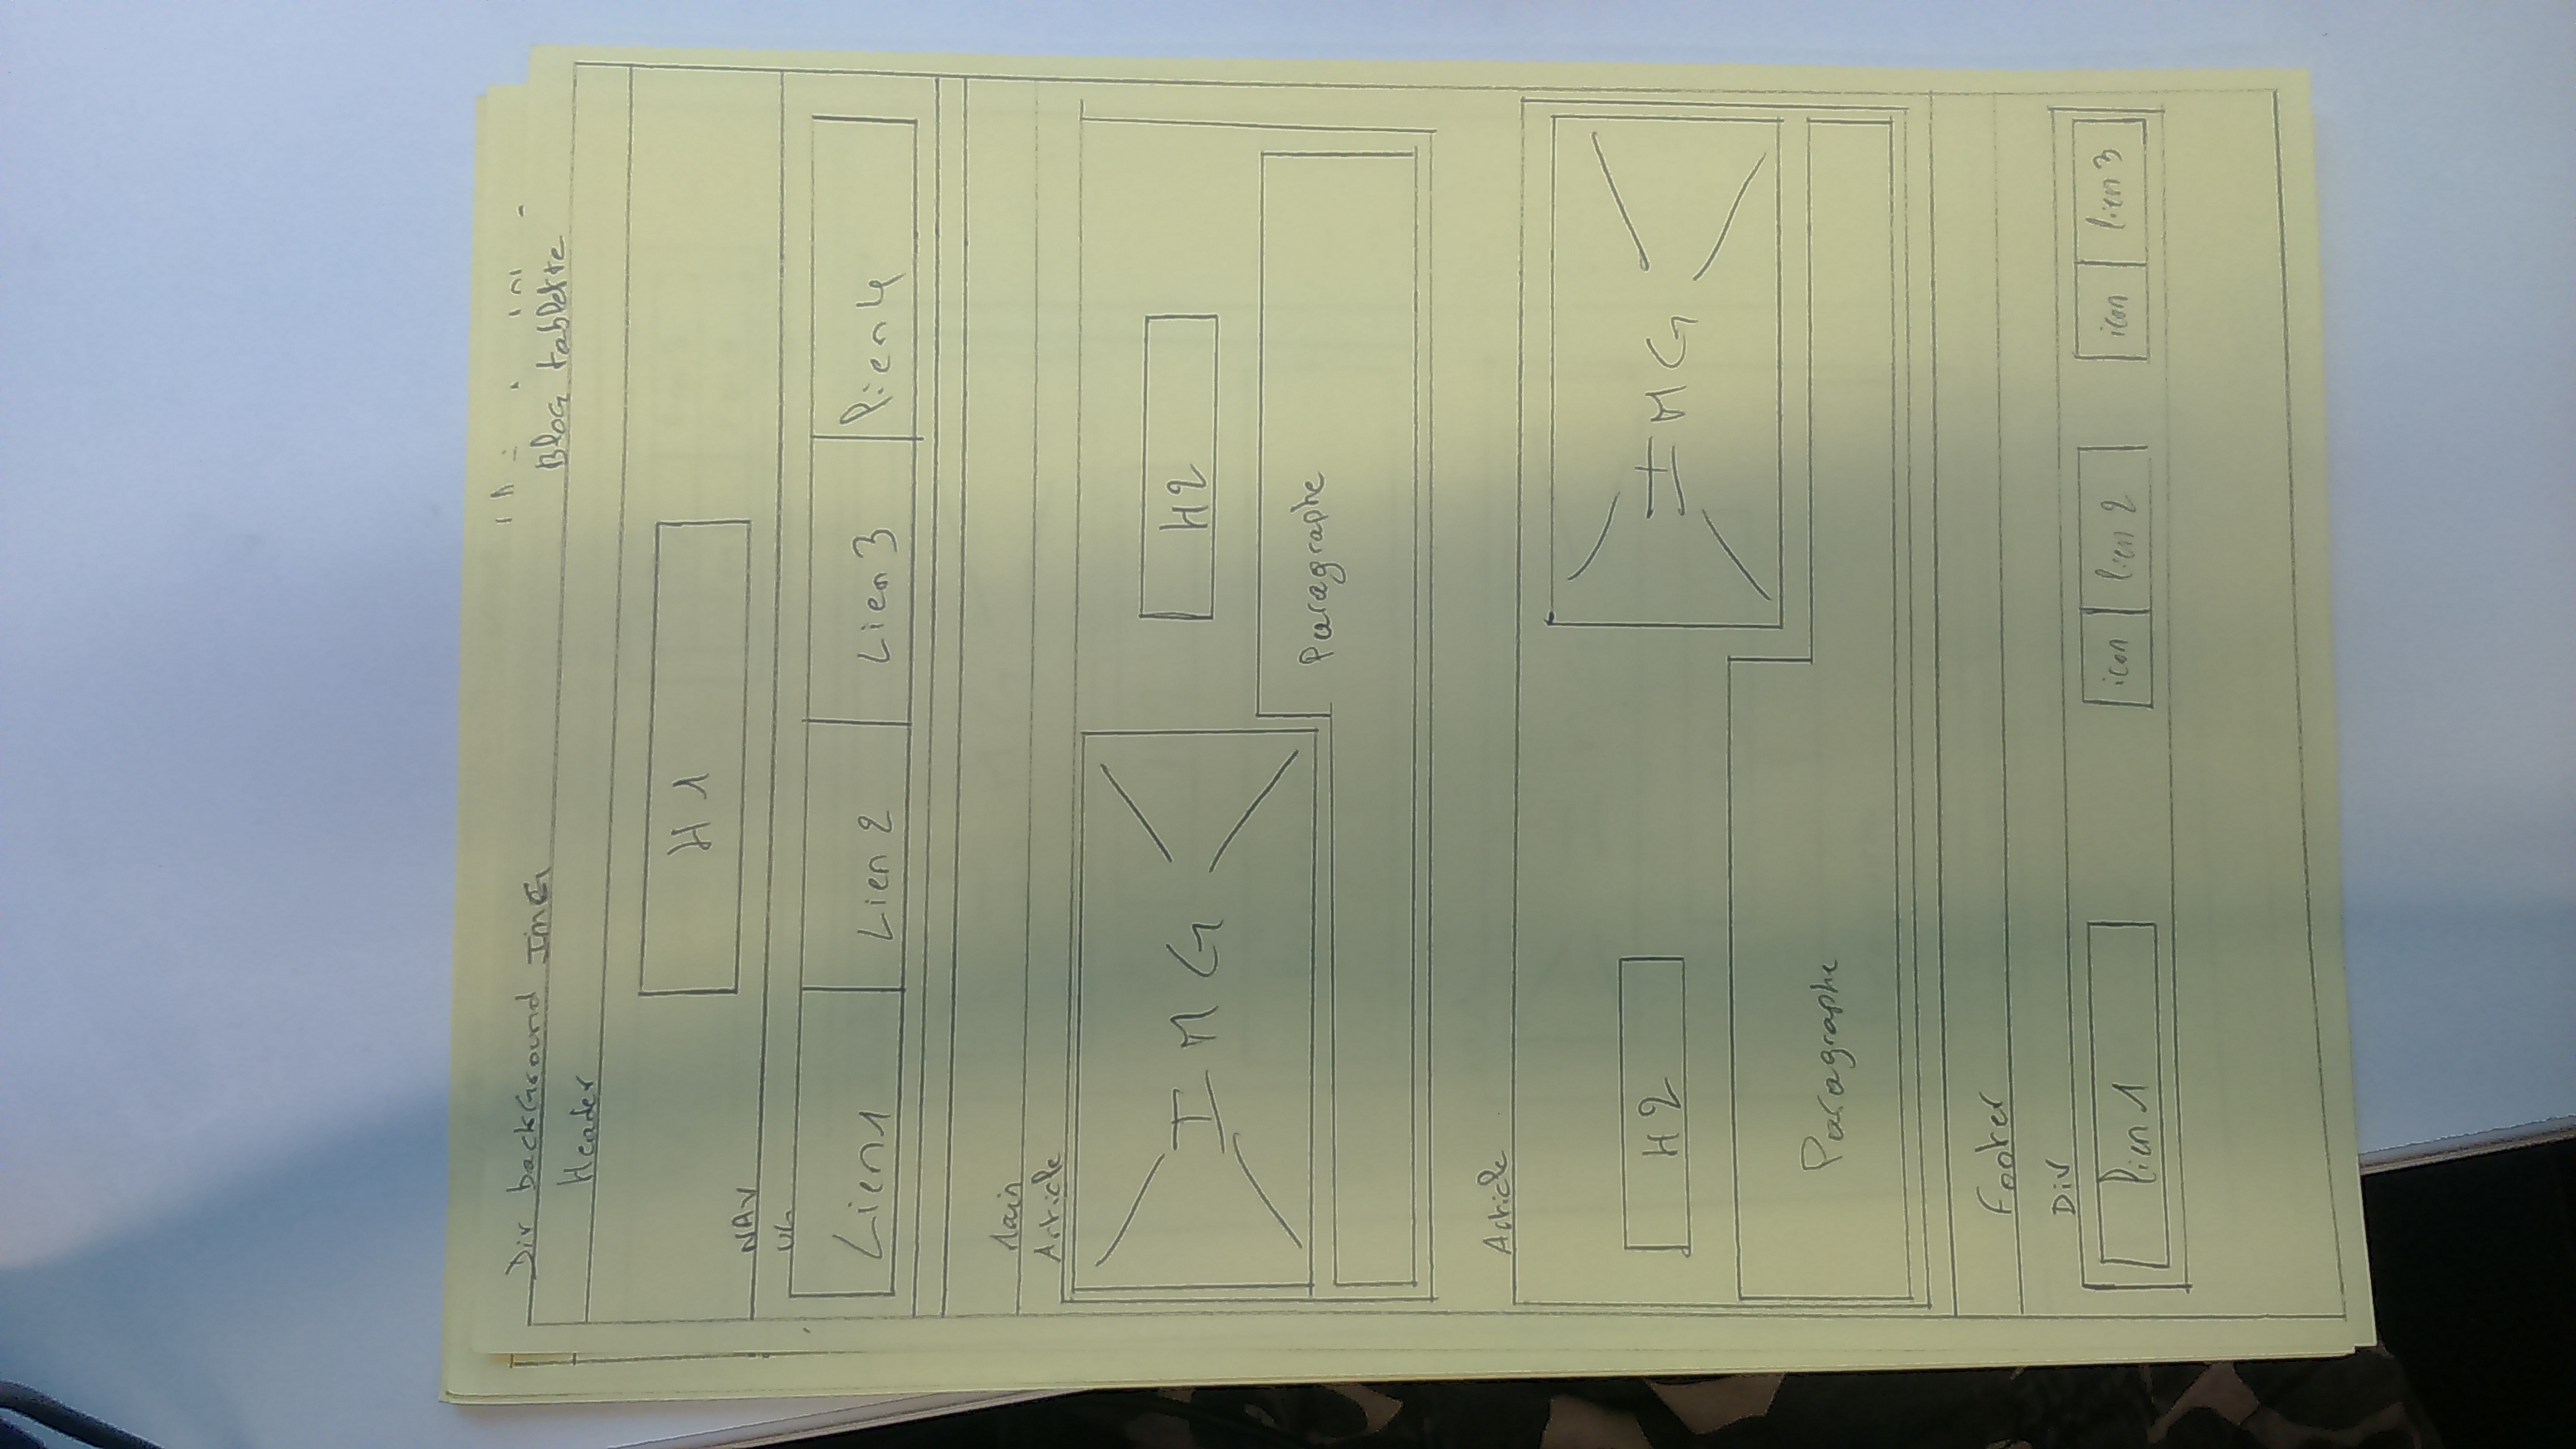 Div backGround ImG
Blog tablette
Header
H1
NAV
UL
Lien1
Lien 2
Lien 3
lien 4
Main
Article
IMG
H2
Paragraphe
Article
H2
IMG
Paragraphe
Footer
Div
lien 1
icon
lien 2
icon
lien 3